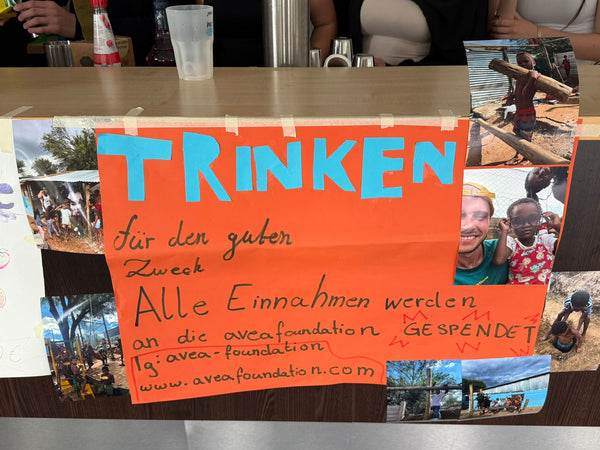 TRINKEN
für den guten
Zweck
Alle Einnahmen werden
an die aveafoundation GESPENDET
Ig: avea-foundation
www.aveafoundation.com